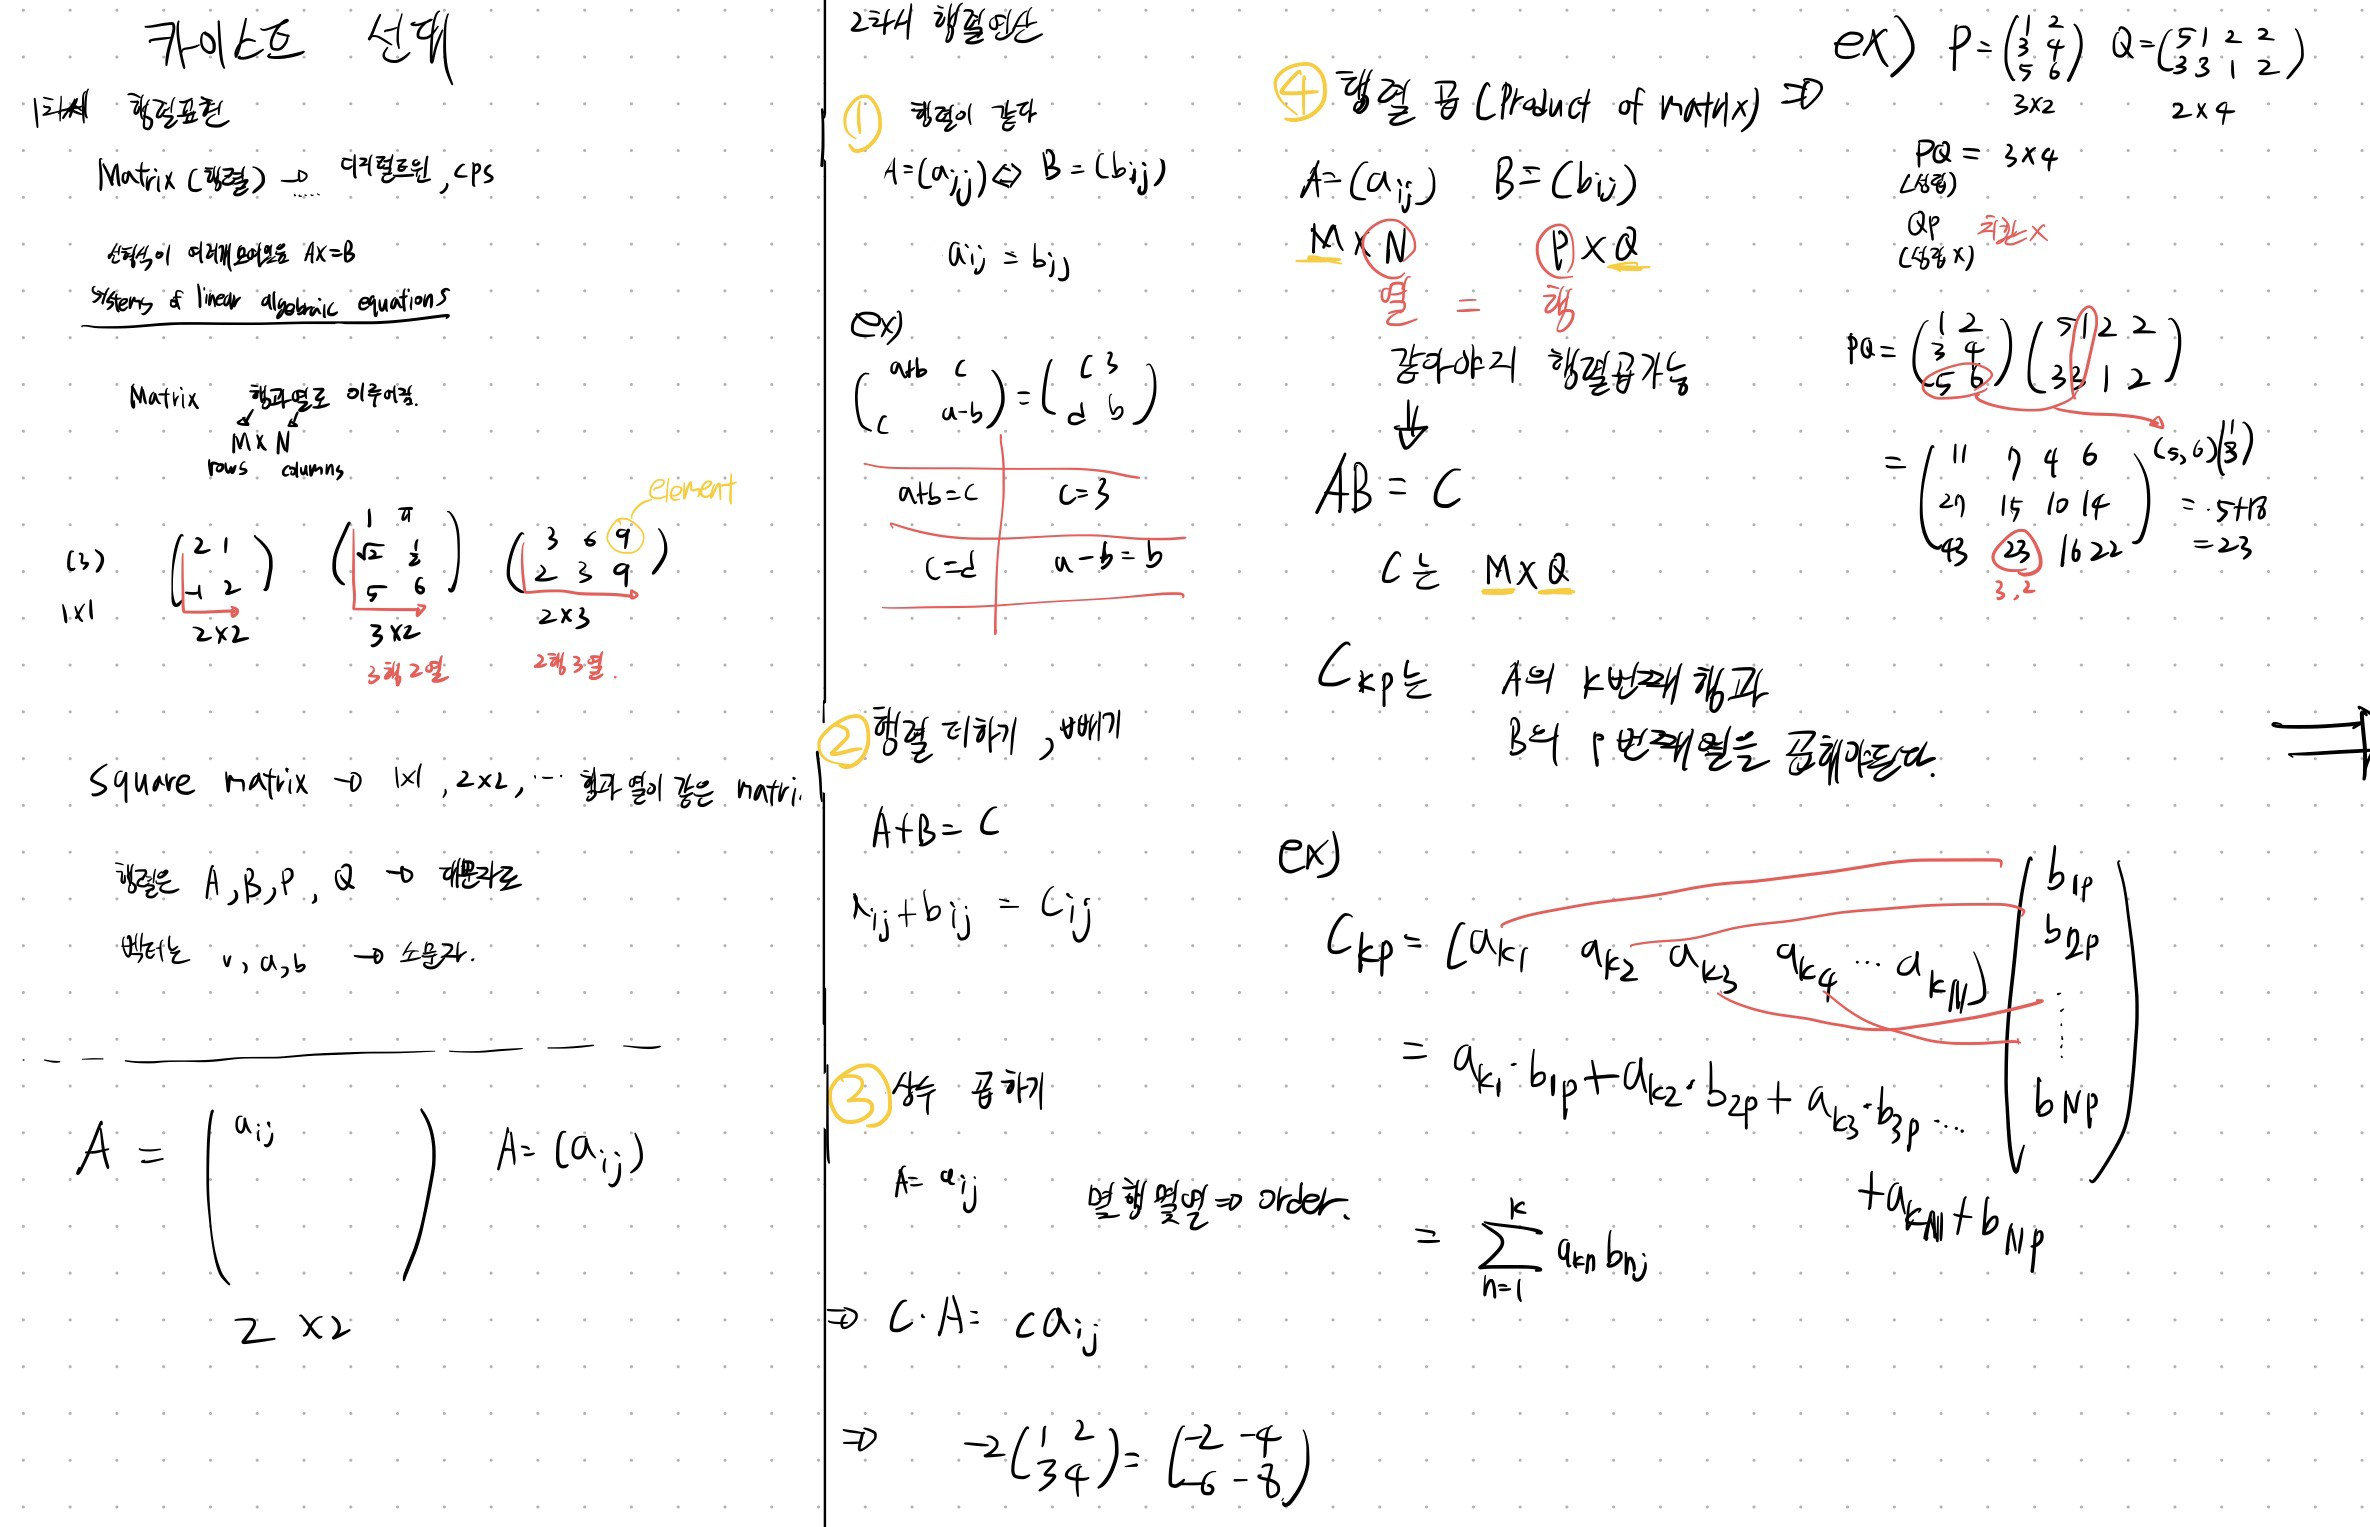 카이스트 선대
1차시 행렬표현
Matrix (행렬) → 디지털트윈, CPS
선형식이 여러개모여있음 AX=B
systems of linear algebraic equations
Matrix 행과열로 이루어짐.
M x N
rows columns
element
(3) (2 1 / -1 2) (1 π / √2 1/2 / 5 6) (3 6 9 / 2 3 9)
1x1 2x2 3x2 2x3
3행2열 2행3열.
square matrix → 1x1, 2x2, ... 행과 열이 같은 matri
행렬은 A, B, P, Q → 대문자로
벡터는 v, a, b → 소문자.
A = ( aij ) A=(aij)
2 x2
2차시 행렬연산
① 행렬이 같다
A=(aij) ⇔ B=(bij)
aij = bij
ex)
(a+b c / c a-b) = (c 3 / d b)
a+b=c c=3
c=d a-b=b
② 행렬 더하기, 빼기
A+B= C
ij + bij = Cij
③ 상수 곱하기
A= aij 몇행몇열 ⇒ order.
⇒ C·A= caij
⇒ -2(1 2 / 3 4) = (-2 -4 / -6 -8)
④ 행렬 곱 (Product of matrix) ⇒
A=(aij) B=(bij)
M x N P x Q
열 = 행
같아야지 행렬곱가능
↓
AB = C
C는 MxQ
Ckp는 A의 k번째행과
B의 p번째열을 곱해야된다.
ex)
Ckp = (ak1 ak2 ak3 ak4 ... akN) (b1p / b2p / ... / bNp)
= ak1·b1p + ak2·b2p + ak3·b3p ...
+ akN + bNp
= Σ k n=1 akn bnj
ex) P=(1 2 / 3 4 / 5 6) Q=(5 1 2 2 / 3 3 1 2)
3x2 2x4
PQ = 3x4
(성립)
QP 치환x
(성립x)
PQ= (1 2 / 3 4 / 5 6) (5 1 2 2 / 3 3 1 2)
= (11 7 4 6 / 27 15 10 14 / 43 23 16 22) (5, 6)(1 / 3)
= 5+18
= 23
3,2